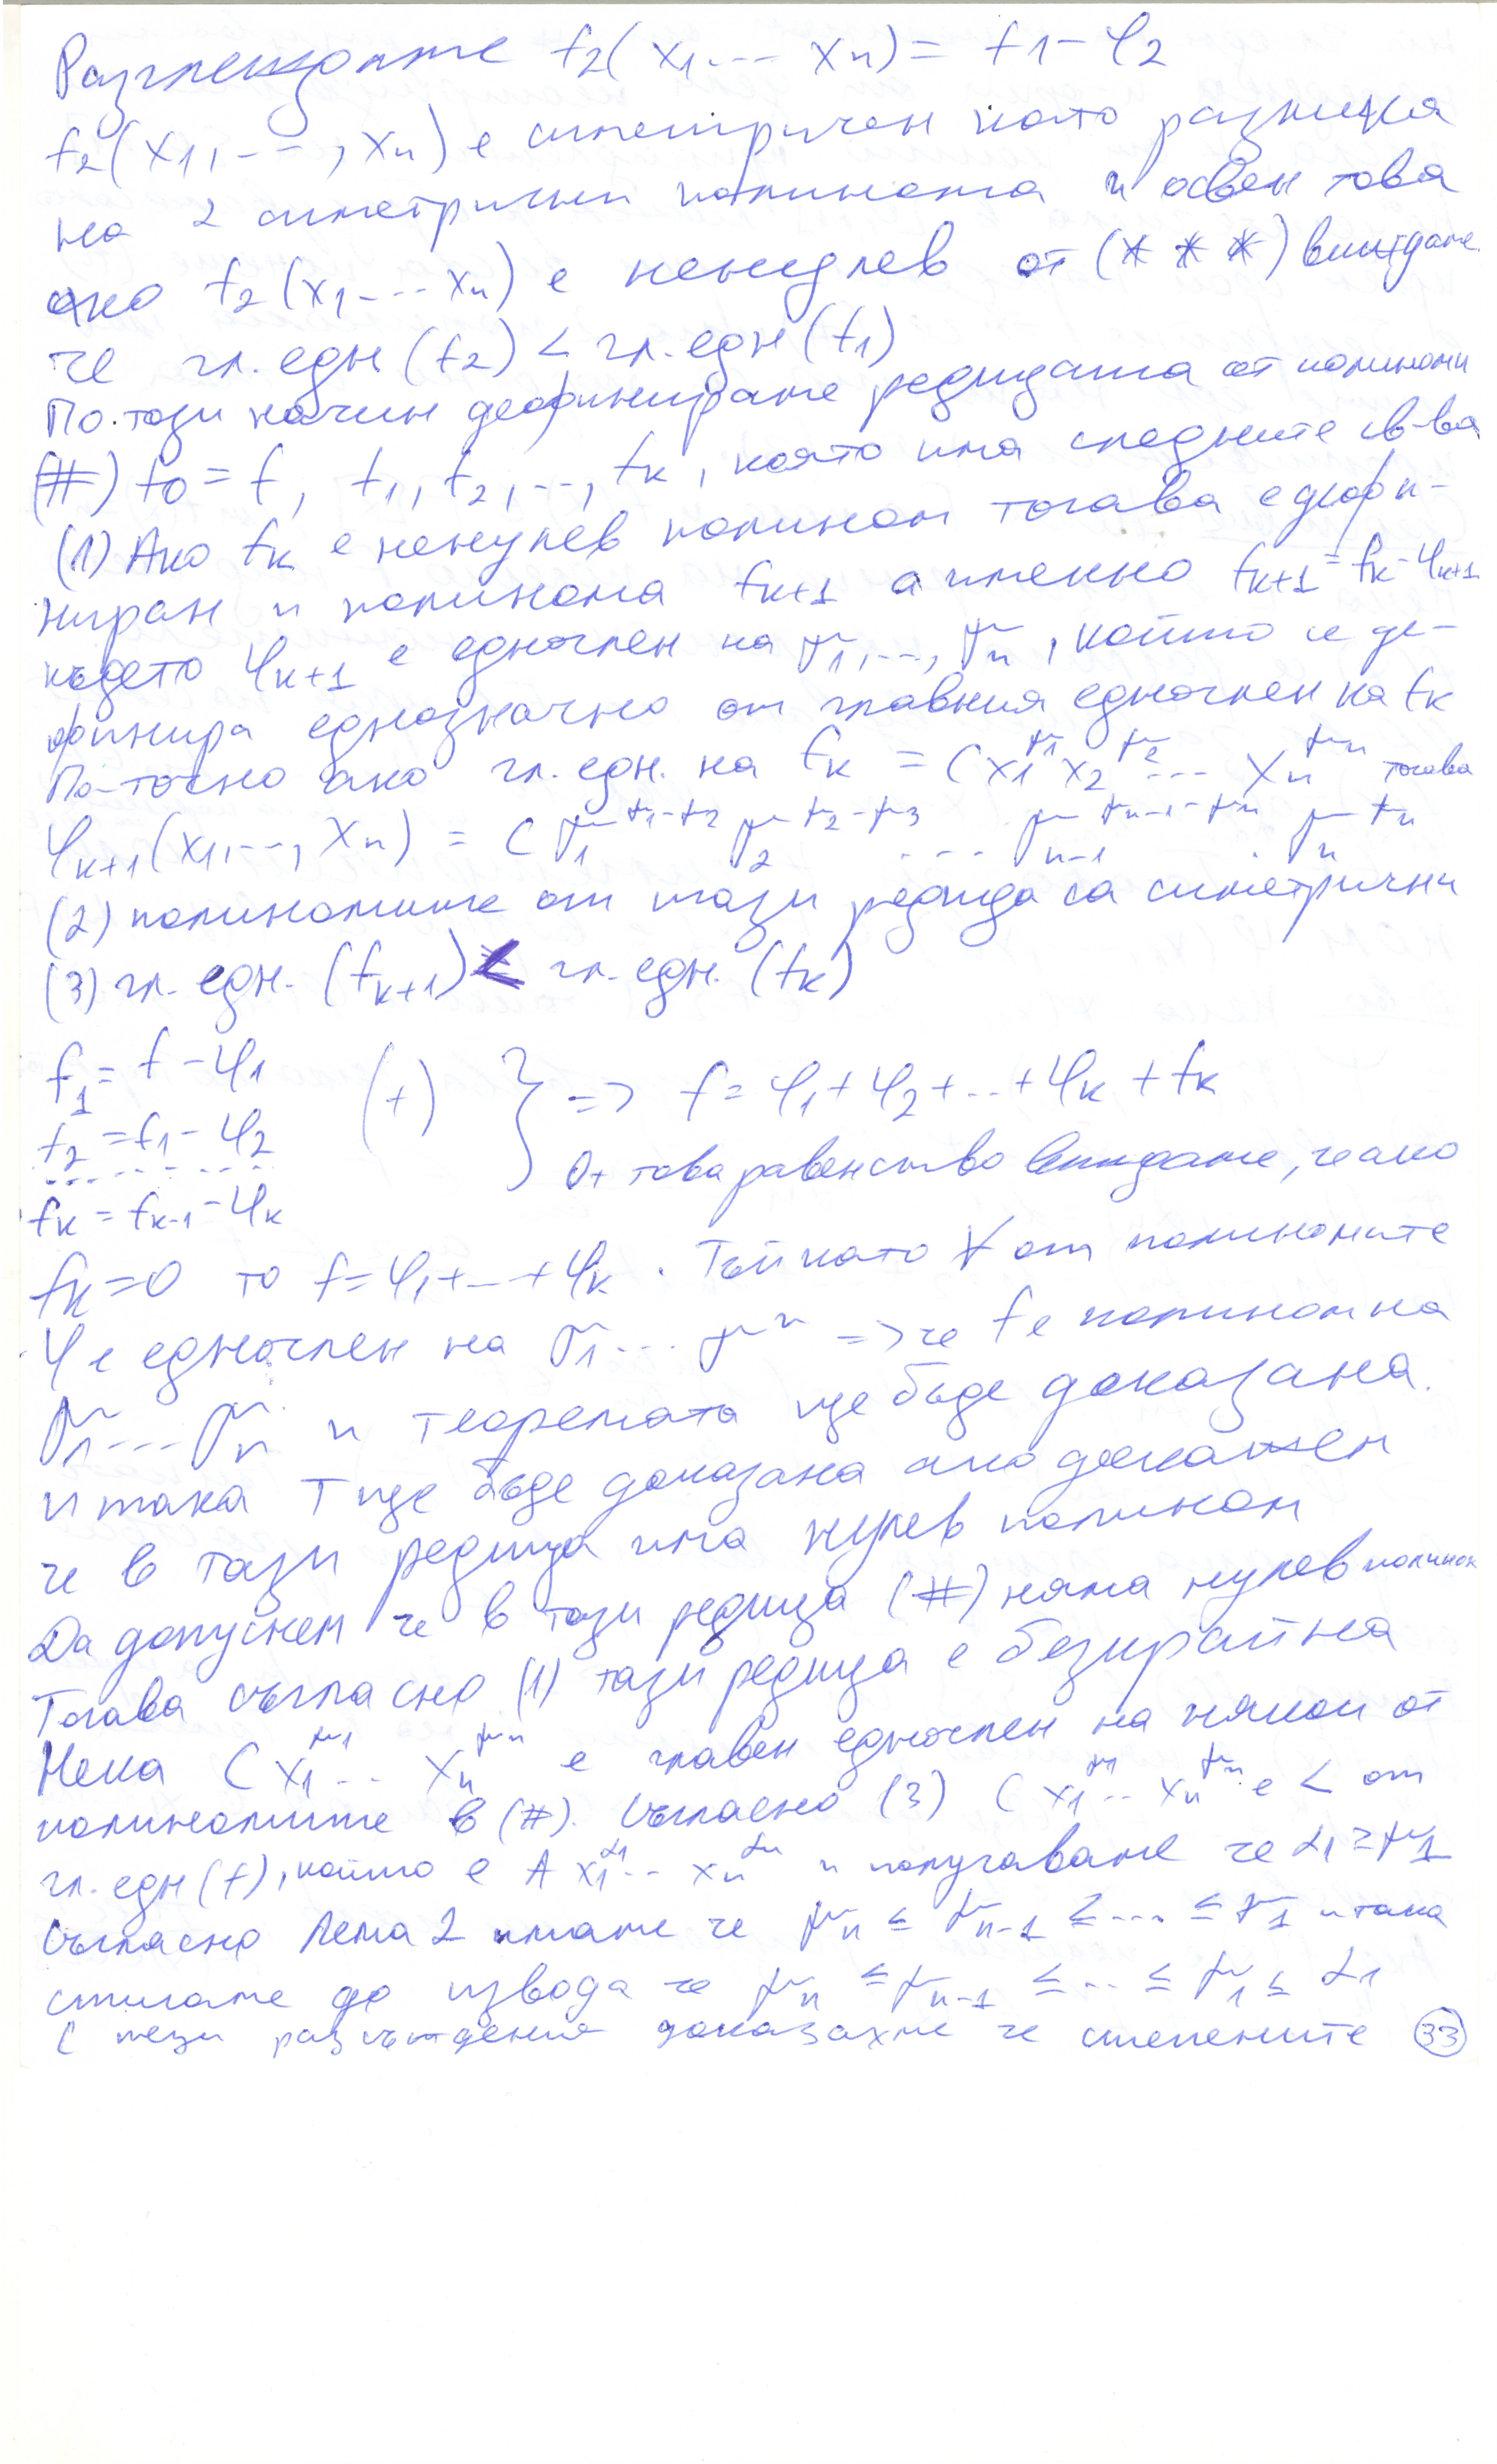 Разглеждаме f2(x1 ... xn) = f1 - φ2
f2(x1, ..., xn) е симетричен като разлика
на 2 симетрични полинома и освен това
ако f2(x1 ... xn) е ненулев от (***) виждаме
че гл. едн (f2) < гл. едн (f1)
По този начин дефинираме редицата от полиноми
(#) f0 = f, f1, f2, ..., fk, която има следните св-ва
(1) Ако fk е ненулев полином тогава е дефи-
ниран и полинома fk+1 а именно fk+1 = fk - φk+1
където φk+1 е едночлен на σ1, ..., σn, който се де-
финира еднозначно от главния едночлен на fk
По-точно ако гл. едн. на fk = C x1^μ1 x2^μ2 ... xn^μn тогава
φk+1(x1, ..., xn) = C σ1^μ1-μ2 σ2^μ2-μ3 ... σn-1^μn-1-μn . σn^μn
(2) полиномите от тази редица са симетрични
(3) гл. едн. (fk+1) < гл. едн. (fk)
f1 = f - φ1
f2 = f1 - φ2 (+) } => f = φ1 + φ2 + ... + φk + fk
fk = fk-1 - φk От това равенство виждаме, че ако
fk = 0 то f = φ1 + ... + φk . Тъй като ∀ от полиномите
φ е едночлен на σ1 ... σn => че f е полином на
σ1 ... σn и теоремата ще бъде доказана.
И така Т ще бъде доказана ако докажем
че в тази редица има нулев полином
Да допуснем че в тази редица (#) няма нулев полином
Тогава съгласно (1) тази редица е безкрайна
Нека C x1^μ1 ... xn^μn е главен едночлен на някои от
полиномите в (#). Съгласно (3) C x1^μ1 ... xn^μn е < от
гл. едн (f), който е A x1^α1 ... xn^αn и получаваме че α1 ≥ μ1
Съгласно Лема 2 имаме че μn ≤ μn-1 ≤ ... ≤ μ1 и така
стигаме до извода че μn ≤ μn-1 ≤ ... ≤ μ1 ≤ α1
С тези разсъждения доказахме че степените 33